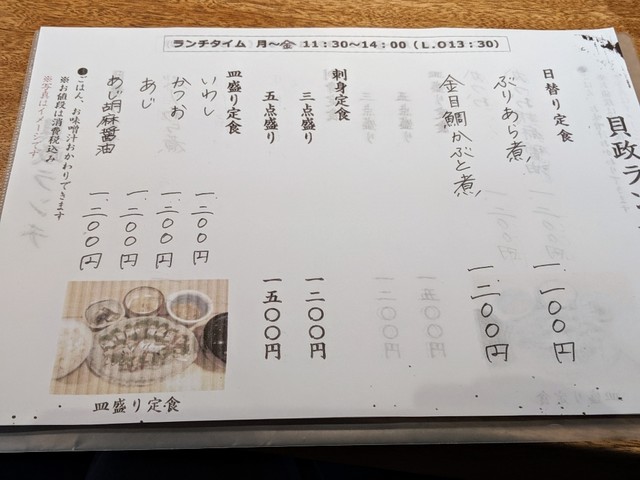 ランチタイム　月～金 11：30～14：00（L.O13：30）
貝政ラン
日替り定食
ぶりあら煮 一、一〇〇円
金目鯛かぶと煮
刺身定食
三点盛り 一二〇〇円
五点盛り 一五〇〇円
皿盛り定食
いわし 一、二〇〇円
かつお 一、二〇〇円
あじ 一、二〇〇円
あじ胡麻醤油 一、二〇〇円
●ごはん、お味噌汁おかわりできます
※お値段は消費税込み
※写真はイメージです
皿盛り定食